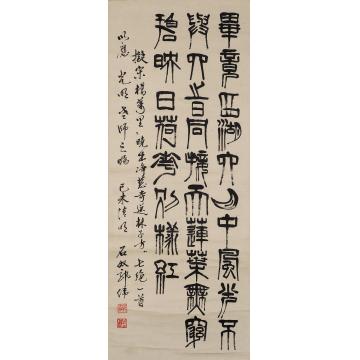 畢竟西湖六月中風光不
與四時同接天蓮葉無窮
碧映日荷花別樣紅
宋楊萬里曉出淨慈寺送林子方七絕一首
以應 光明 老師之囑 己未清明 石奴